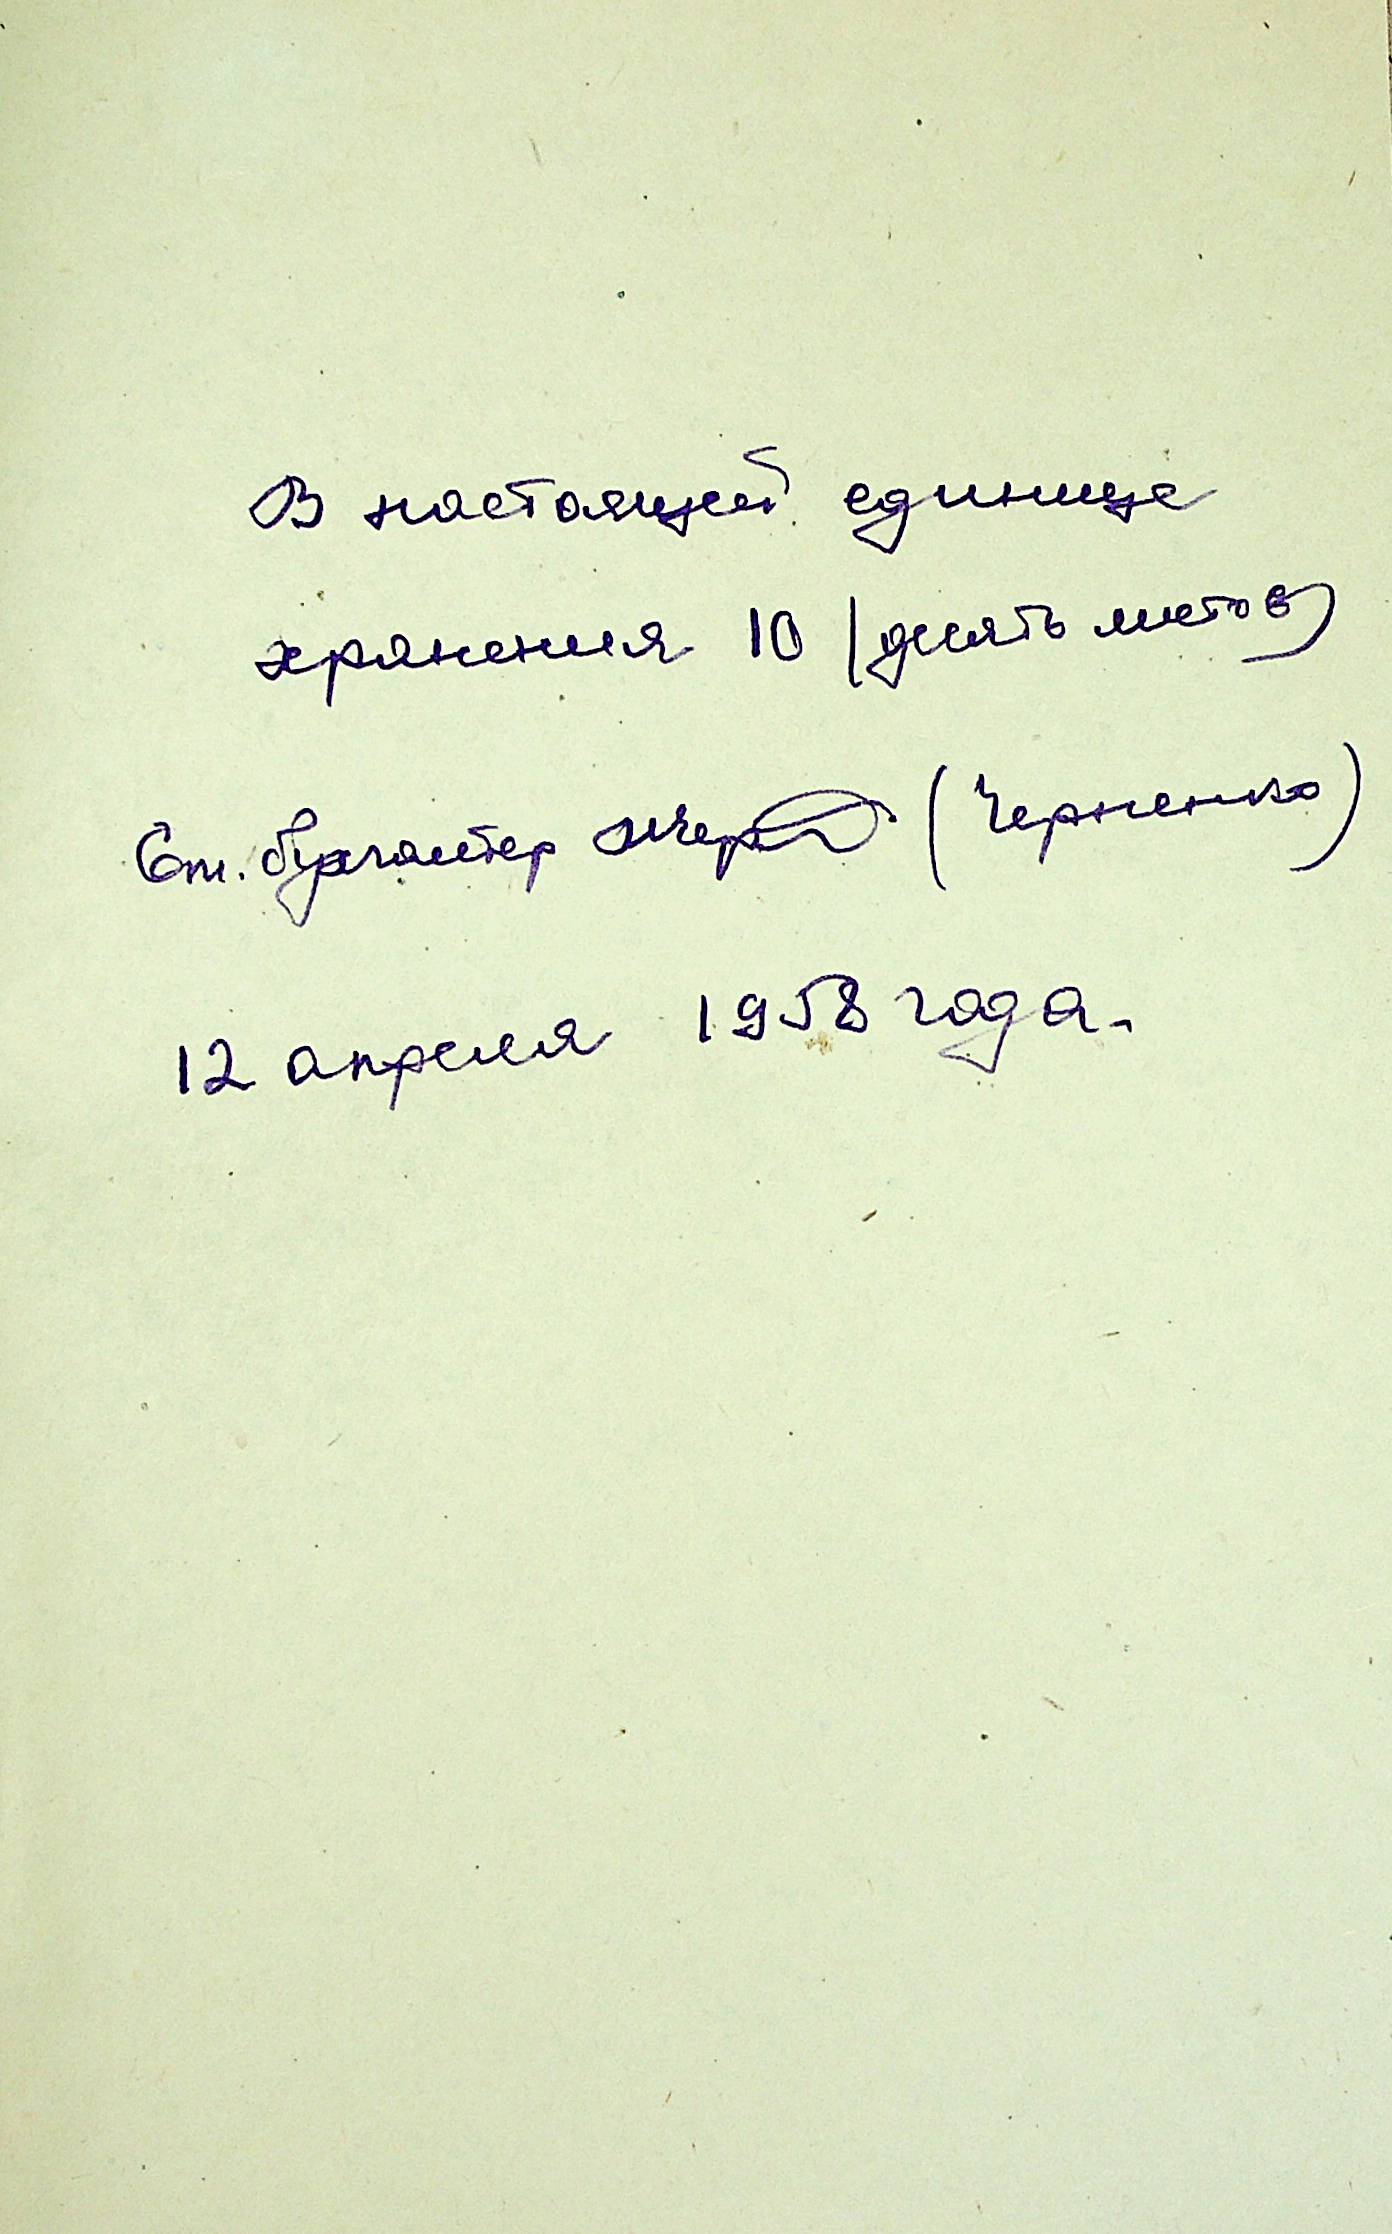 В настоящей единице
хранения 10 (десять листов)
Ст. бухгалтер (Черненко)
12 апреля 1958 года.